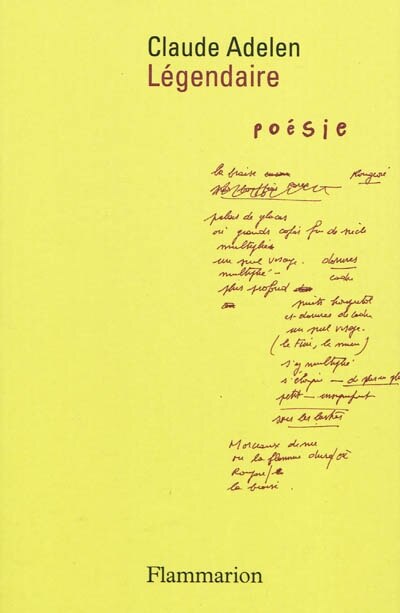 Claude Adelen
Légendaire
poésie
la braise Rougeoi
palais de glaces
où grands cafés fin de siècle
multipliés
un seul visage. dorures
multiplié - cadre
plus profond
et dorures de cadre
un seul visage.
(le tien, le mien)
s'y multiplie
s'éloigne - de plus en
petit -
sous les lustres
Morceaux de
ou la flamme
la braise.
Flammarion